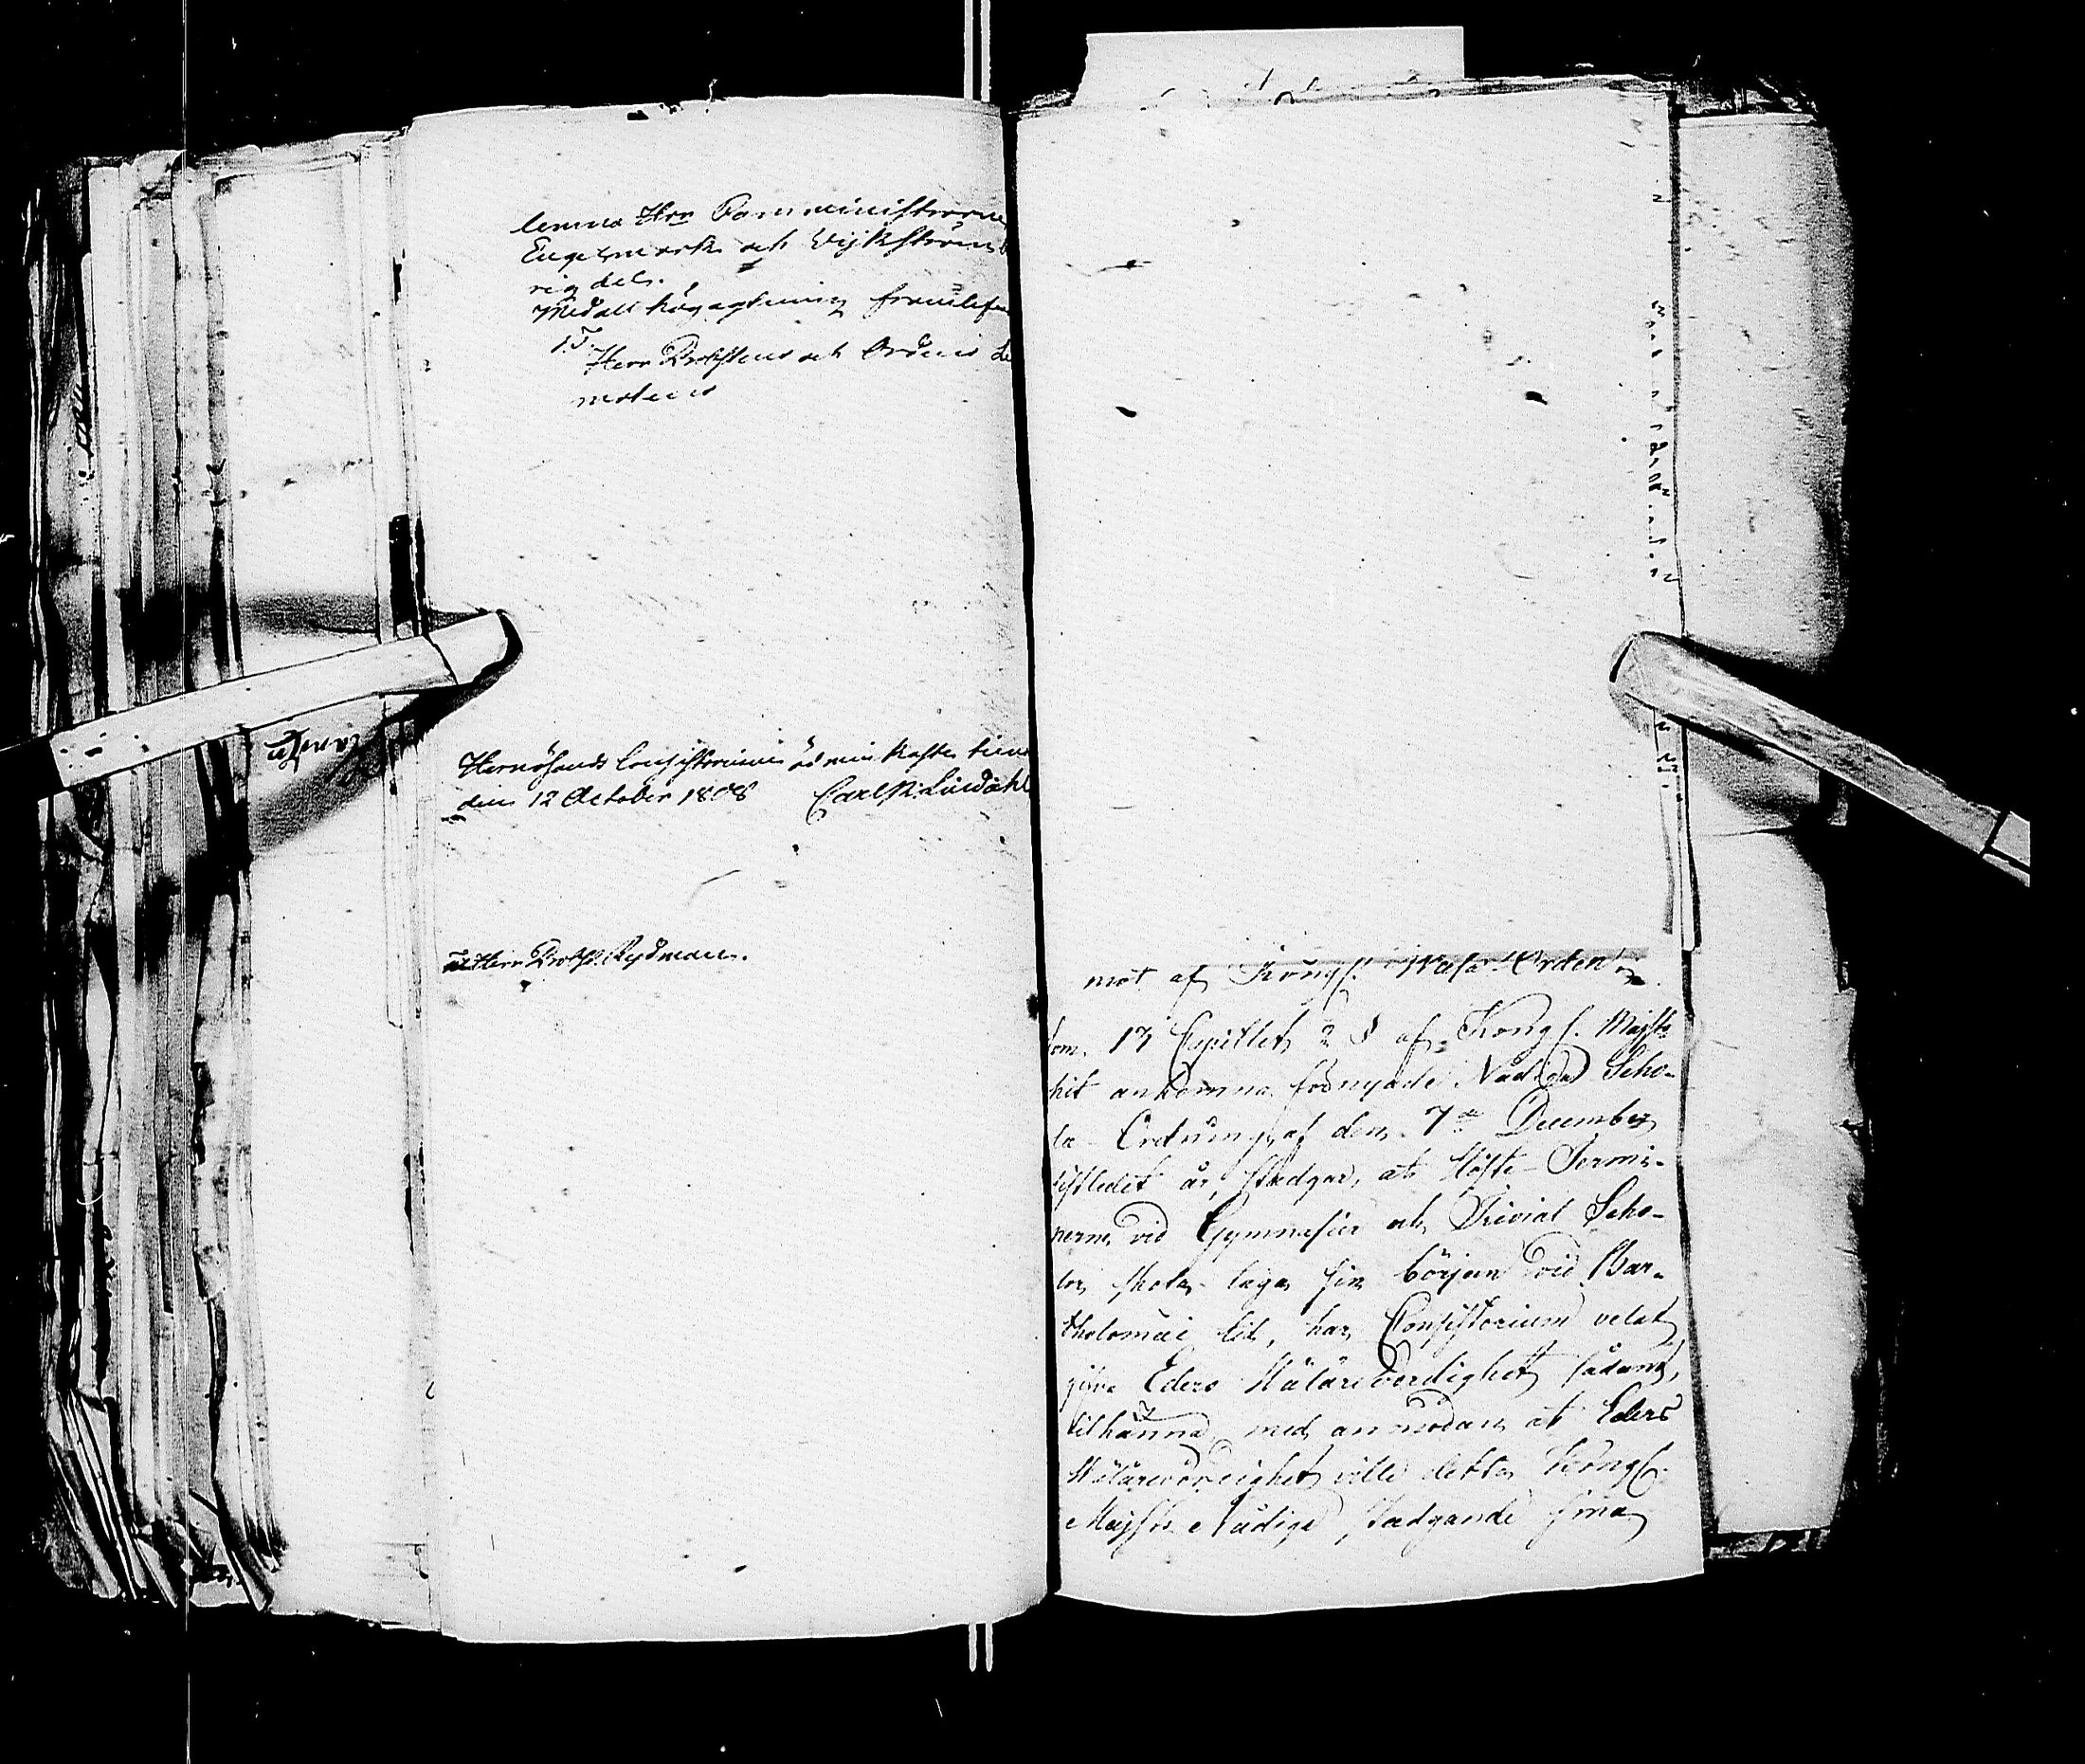 lemna Hrr Comministrarne
Engelmark och Wijkström b
rig del.
Med all högagtning framlefver
T.T.
Herr Probstens och Ordens Le
motens
Hernösands Consistorium
den 12 October 1808 Carl N. Lindahl
Herr Probst Rydman.
mot af Kongl. Wasa-Orden
som 17 Capitlet 2 § af Kongl. Majsts
hit ankomna förnyade Nådiga Scho-
la-Ordning af den 7de December
sistledit år, stadgar, at Höste-Termi-
nerne vid Gymnasier och Trivial Scho-
lor skola taga sin början vid Bar-
tholomæi tid, har Consistorium velat
gifva Eders Wälärevördighet sådant
tilkänna, med anmodan at Eders
Wälärevördighet ville detta Kongl.
Majsts Nådiga stadgande sina